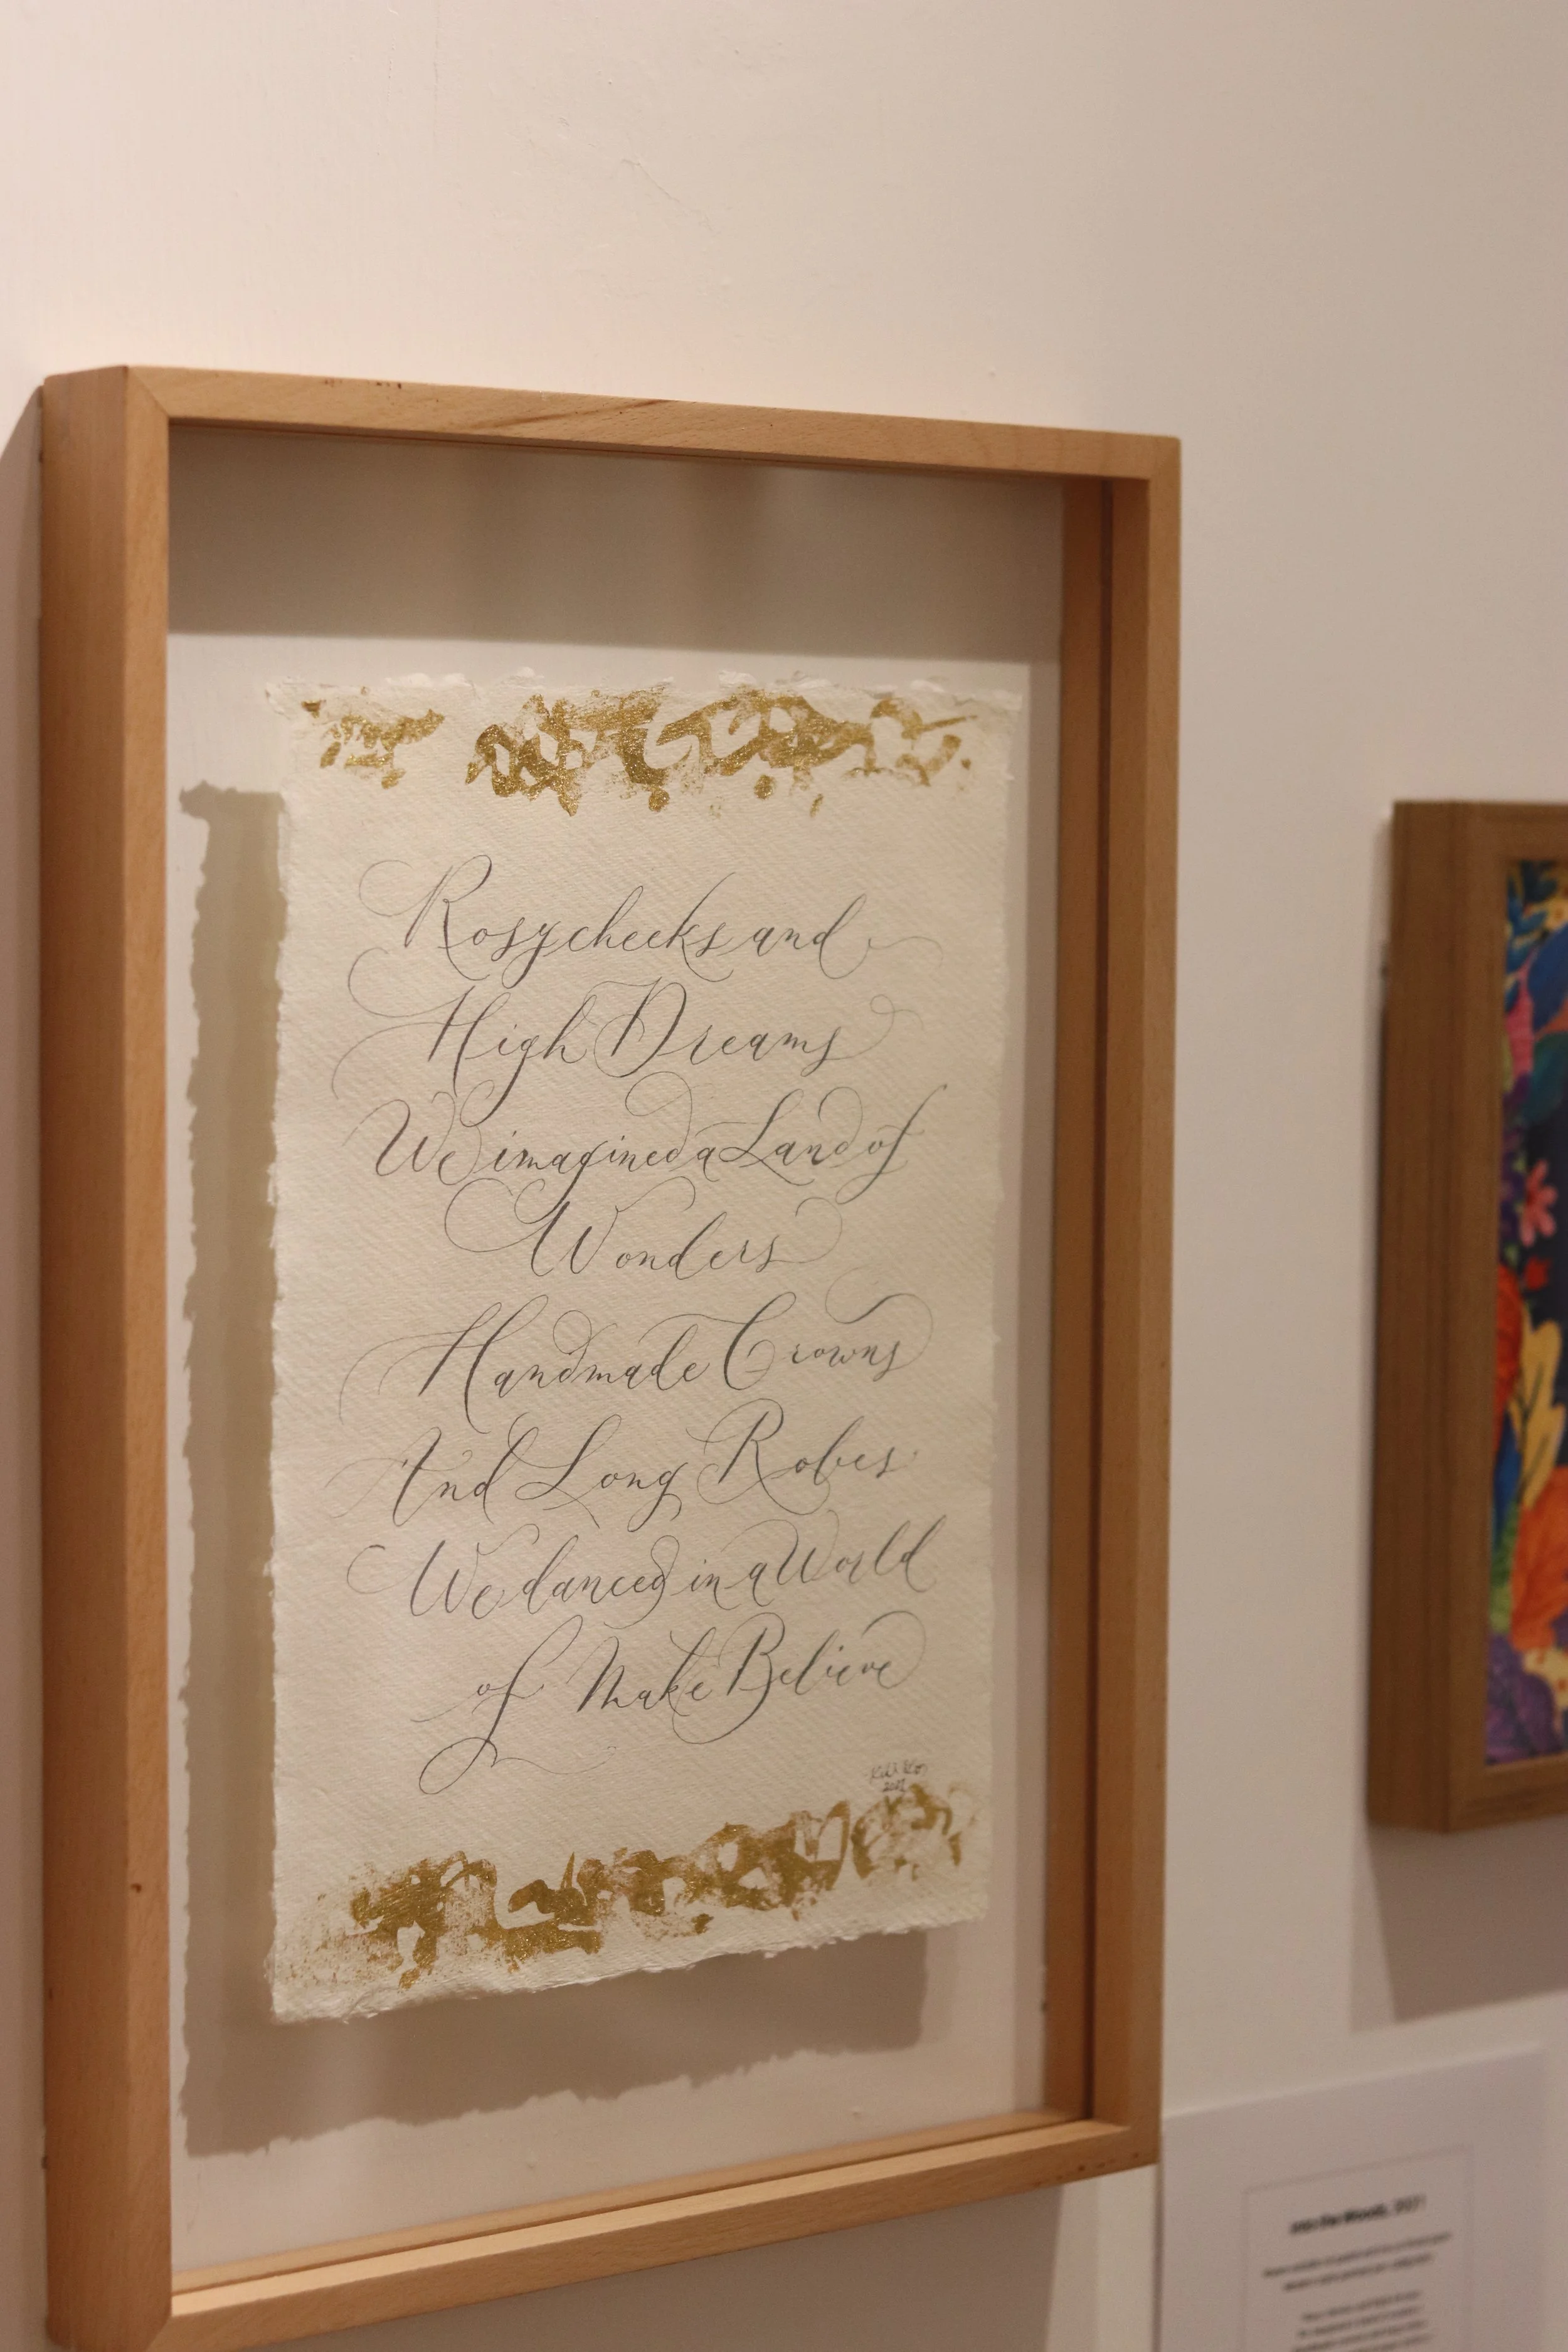 Rosy cheeks and
High Dreams
We imagined a Land of
Wonders
Handmade Crowns
And Long Robes
We danced in a World
of Make Believe
2021
Into the Woods, 2021